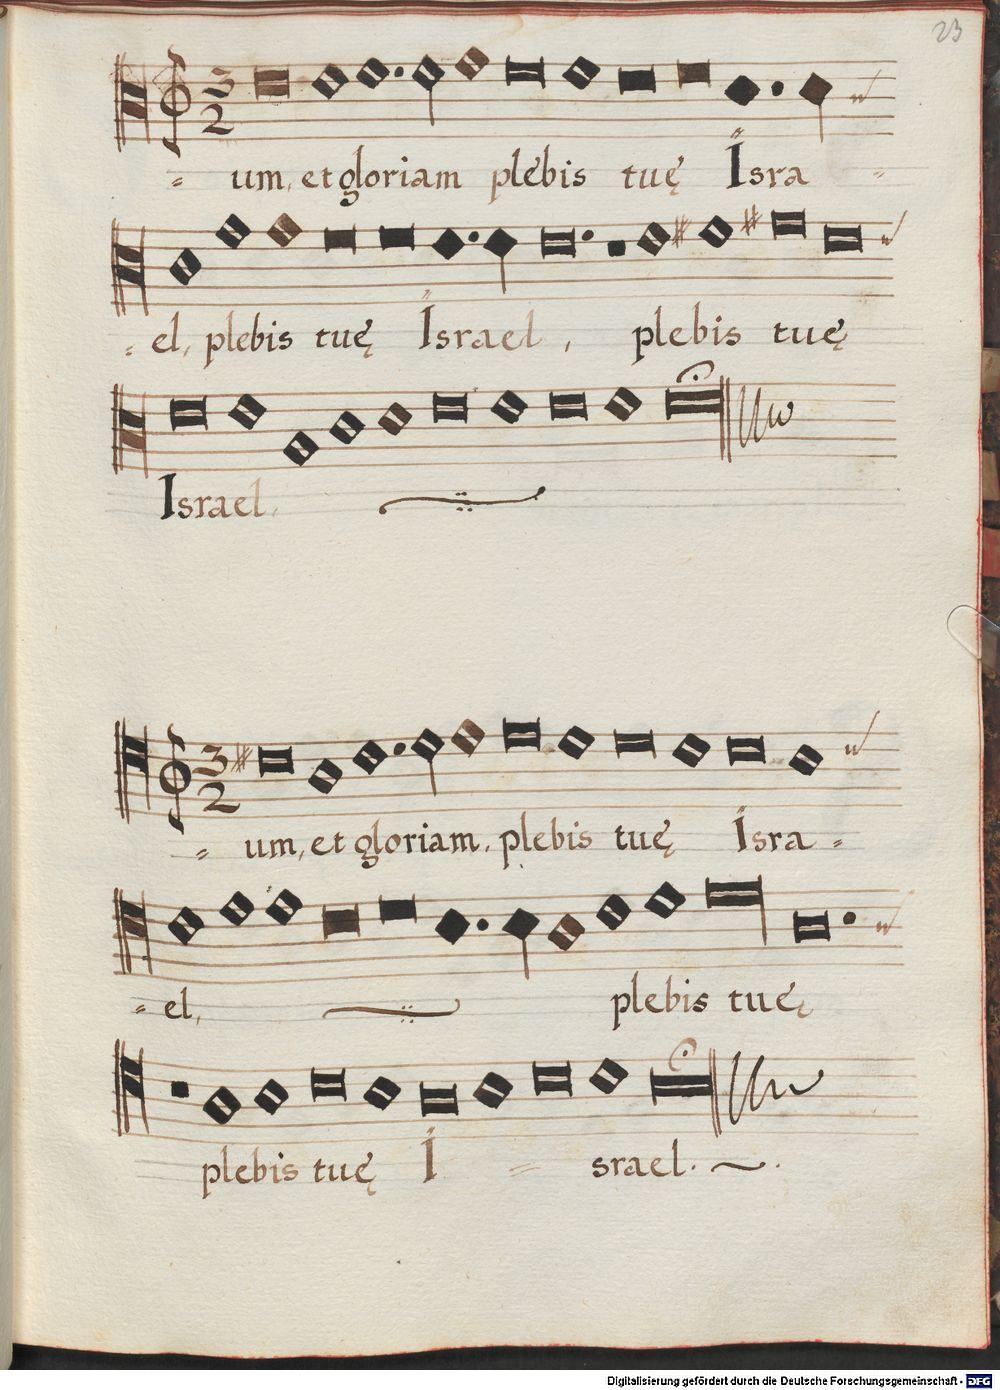 23
3
2
= um, et gloriam plebis tuę Isra =
= el, plebis tuę Israel, plebis tuę
Israel.
3
2
= um, et gloriam. plebis tuę Isra =
= el, plebis tuę
plebis tuę I = srael.
Digitalisierung gefördert durch die Deutsche Forschungsgemeinschaft - DFG